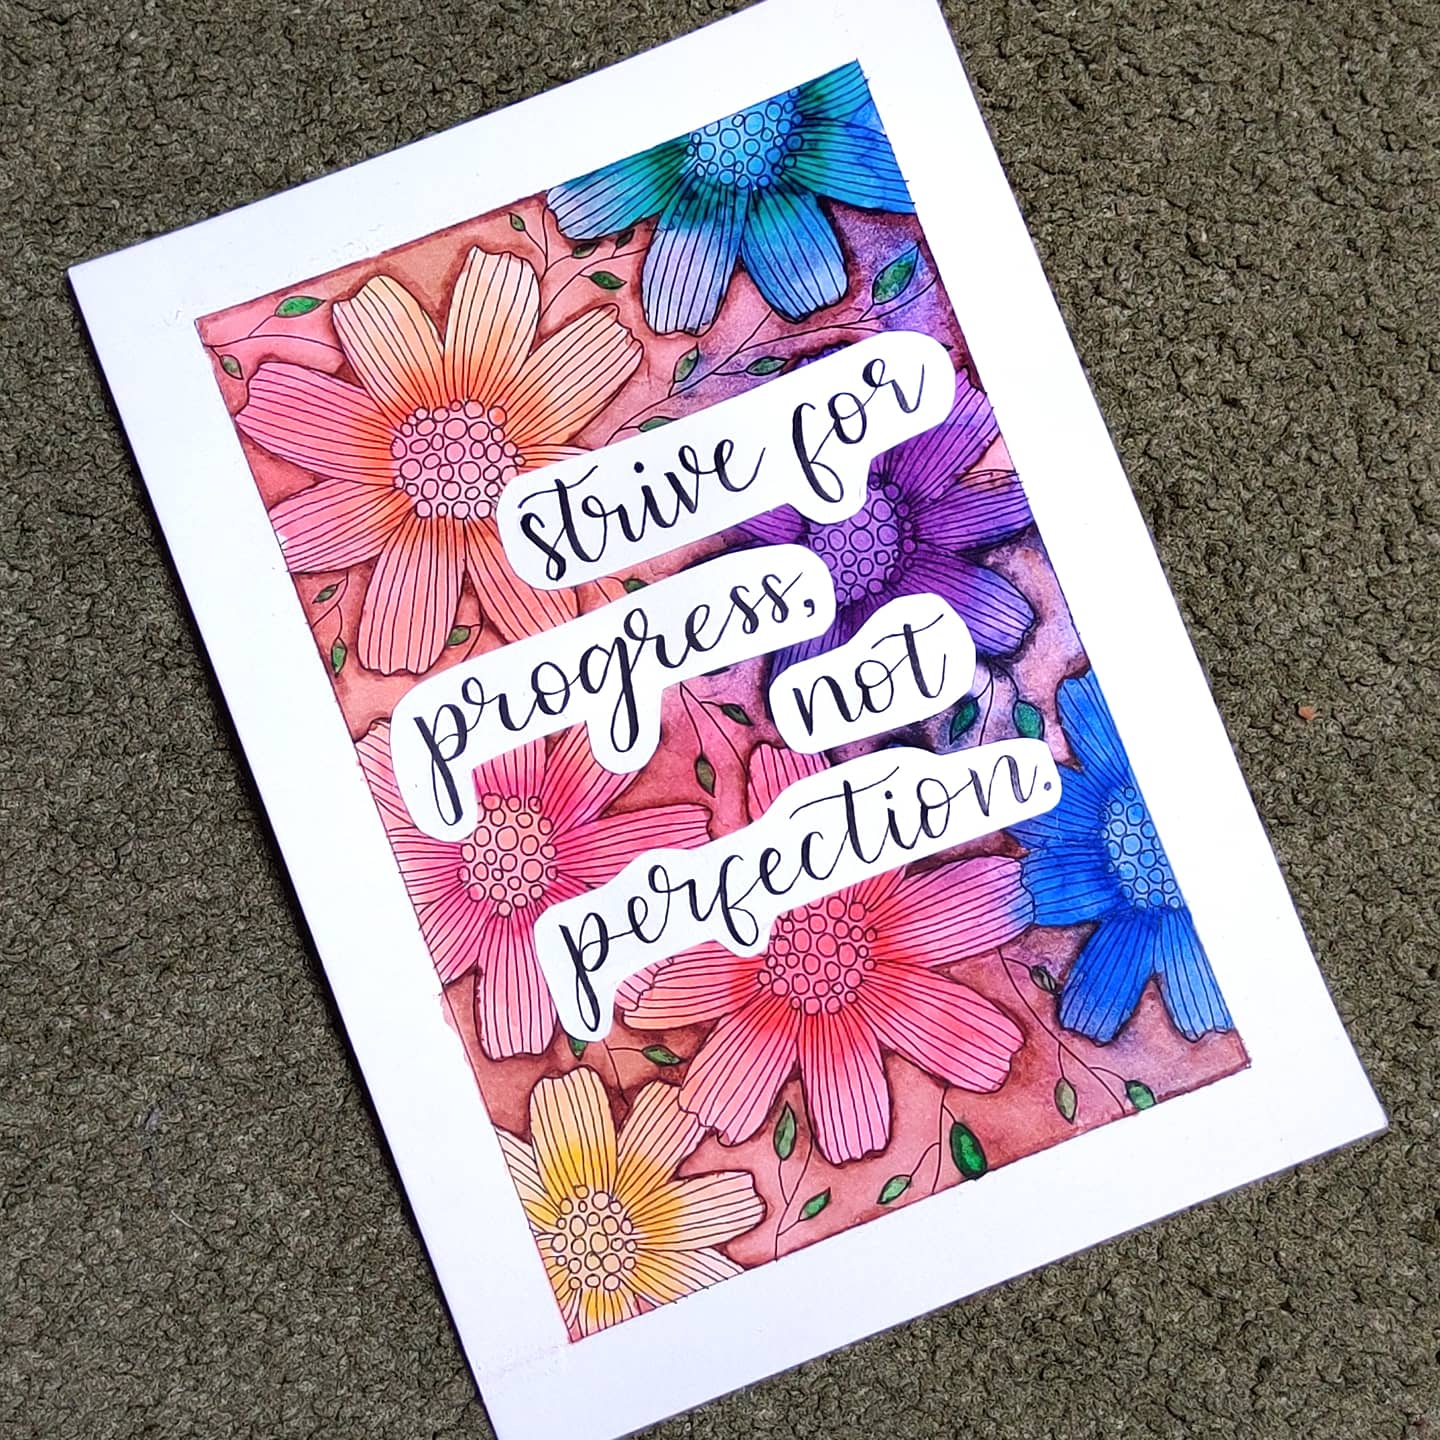 strive for
progress,
not
perfection.